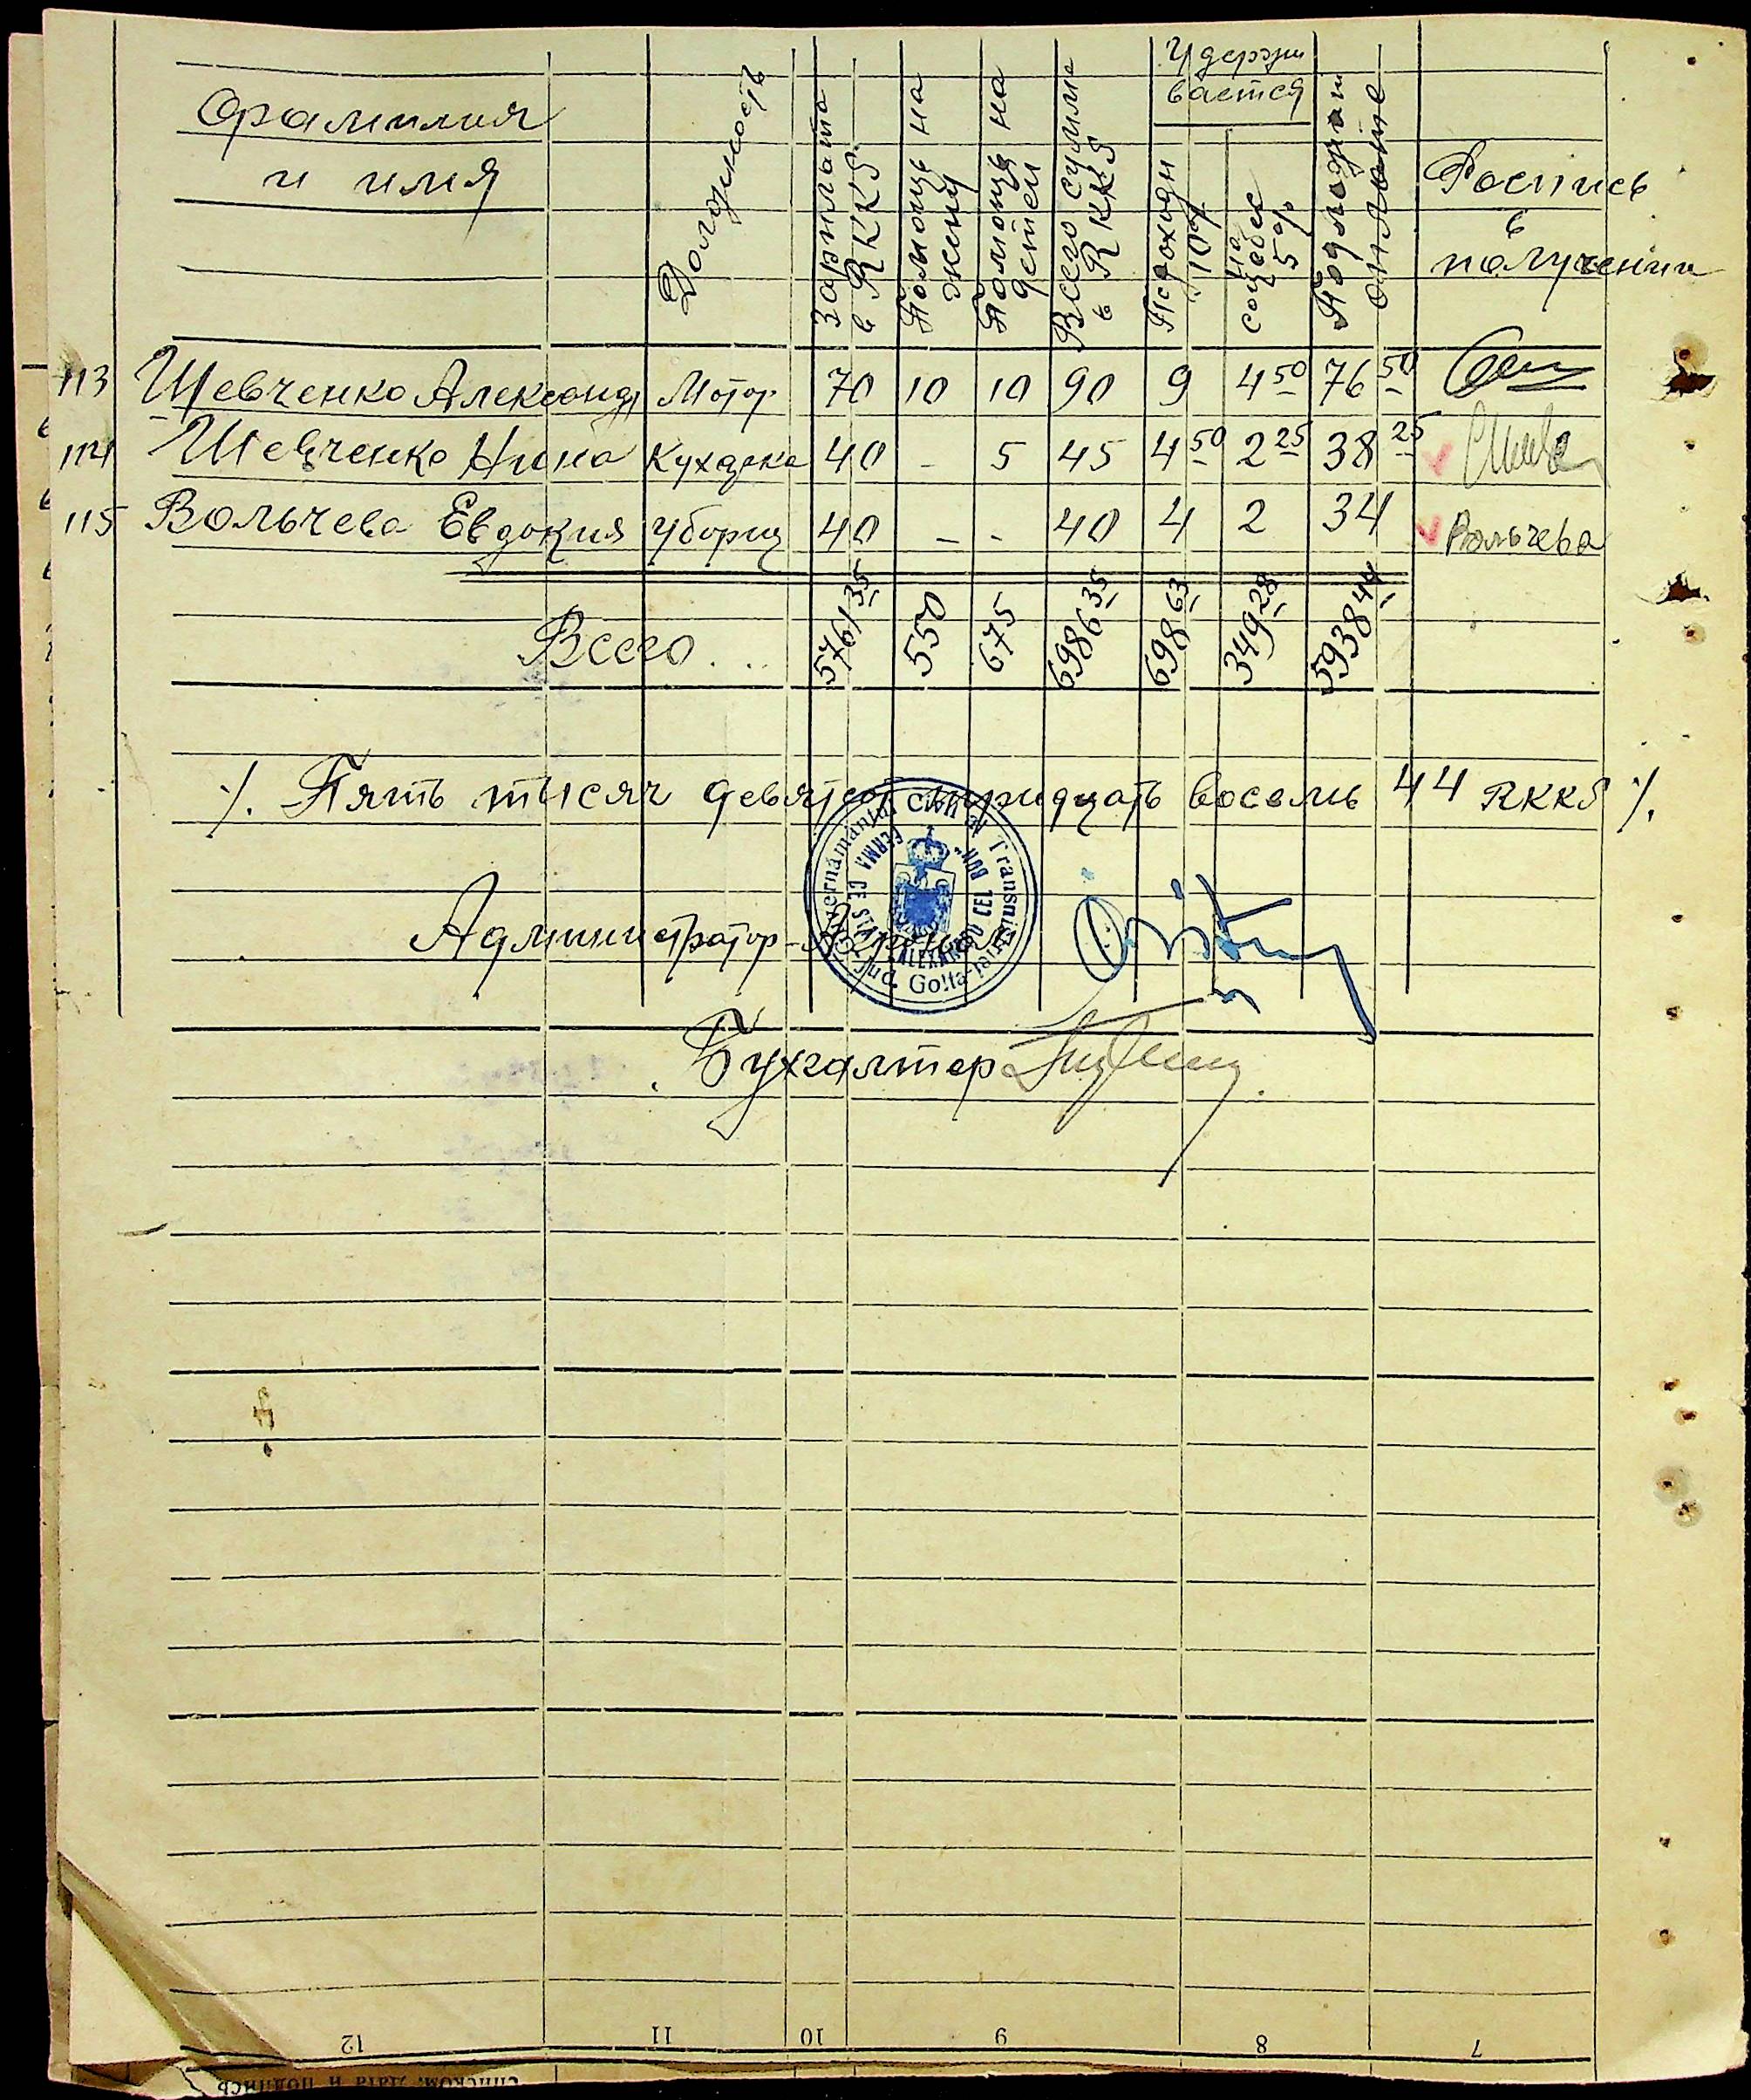 Фамилия
и имя
Должность
Зарплата
в RKKS.
Помощь на
жену
Помощь на
детей
Всего сумма
в RKKS
Удержи
вается
Подоходн
10%
на
соцобес
5%
Подлежит
Роспись
в
получении
113 Шевченко Александ Мотор 70 10 10 90 9 4 50 76 50
114 Шевченко Нина Кухарка 40 - 5 45 4 50 2 25 38 25
115 Вольчева Евдокия Уборщ 40 - - 40 4 2 34 v Вольчева
Всего... 5761 35 550 675 6986 35 698 63 349 28 5938 44
%. Пять тысяч девятсот тридцать восемь 44 RKKS %.
Guvernământul Civil al Transnistriei
Jud. Golta
FERMA DE STAT
ALEXANDRU CEL BUN
Администратор-
Бухгалтер
12 11 10 9 8 7
списком. Дата и подпись